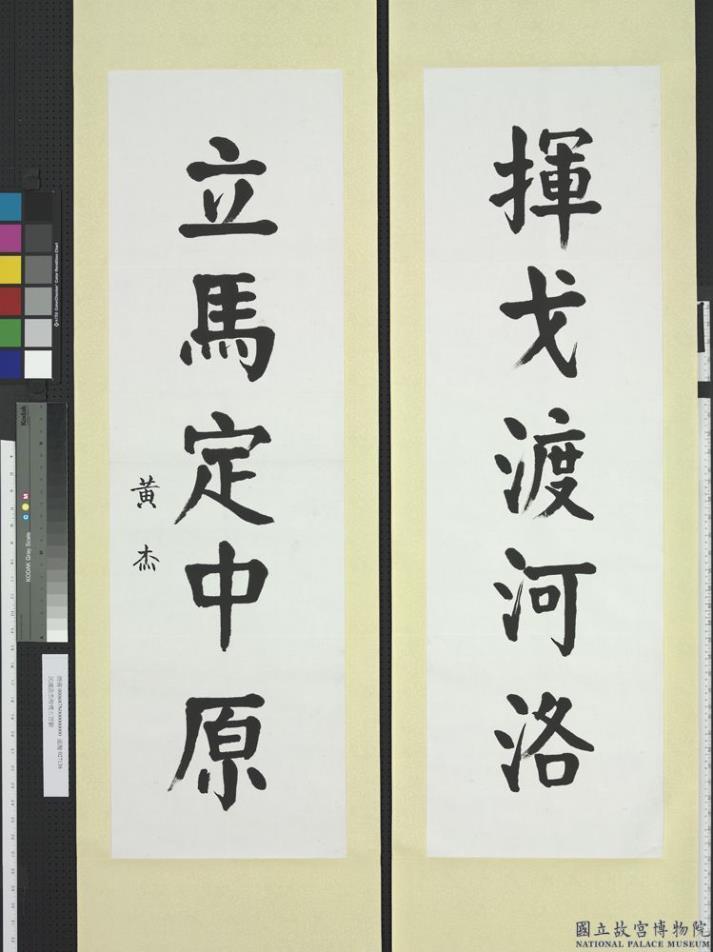 揮戈渡河洛
立馬定中原
黃杰
Kodak
KODAK Gray Scale
C
M
國立故宮博物院
NATIONAL PALACE MUSEUM